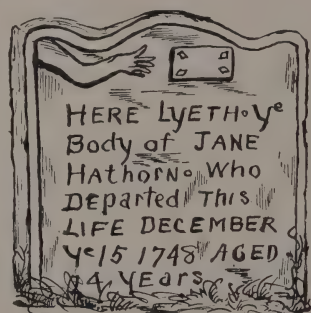 HERE LYETH Yᵉ
Body of JANE
HathorN Who
DEparted This
LIFE DECEMBER
Yᵉ 15 1748 AGED
YEARS